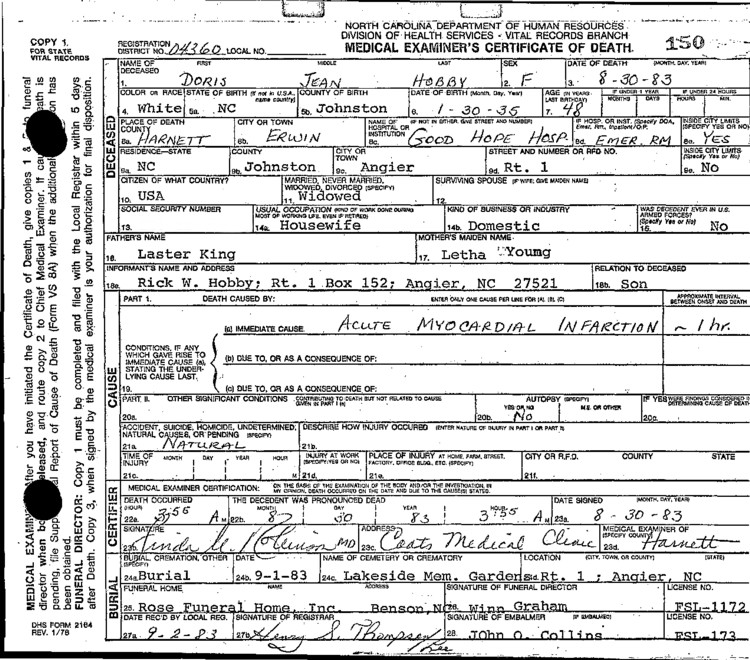 COPY 1.
FOR STATE
VITAL RECORDS
NORTH CAROLINA DEPARTMENT OF HUMAN RESOURCES
DIVISION OF HEALTH SERVICES - VITAL RECORDS BRANCH
MEDICAL EXAMINER'S CERTIFICATE OF DEATH
150
REGISTRATION DISTRICT NO. 04360 LOCAL NO.
NAME OF DECEASED FIRST MIDDLE LAST SEX DATE OF DEATH (MONTH, DAY, YEAR)
1. DORIS JEAN HOBBY 2. F 3. 8-30-83
COLOR OR RACE STATE OF BIRTH (If not in U.S.A., name country) COUNTY OF BIRTH DATE OF BIRTH (Month, Day, Year) AGE (IN YEARS LAST BIRTHDAY) IF UNDER 1 YEAR MONTHS DAYS IF UNDER 24 HOURS HOURS MIN.
4. White 5a. NC 5b. Johnston 6. 1-30-35 7. 48
PLACE OF DEATH COUNTY CITY OR TOWN NAME OF HOSPITAL OR INSTITUTION (IF NOT IN EITHER, GIVE STREET AND NUMBER) IF HOSP. OR INST. (Specify DOA, Emer. Rm., Inpatient/O.P.) INSIDE CITY LIMITS (SPECIFY YES OR NO)
8a. HARNETT 8b. ERWIN 8c. GOOD HOPE HOSP. 8d. EMER. RM 8e. YES
RESIDENCE—STATE COUNTY CITY OR TOWN STREET AND NUMBER OR RFD NO. INSIDE CITY LIMITS (Specify Yes or No)
9a. NC 9b. Johnston 9c. Angier 9d. Rt. 1 9e. No
CITIZEN OF WHAT COUNTRY? MARRIED, NEVER MARRIED, WIDOWED, DIVORCED (SPECIFY) SURVIVING SPOUSE (IF WIFE, GIVE MAIDEN NAME)
10. USA 11. Widowed 12.
SOCIAL SECURITY NUMBER USUAL OCCUPATION (KIND OF WORK DONE DURING MOST OF WORKING LIFE, EVEN IF RETIRED) KIND OF BUSINESS OR INDUSTRY WAS DECEDENT EVER IN U.S. ARMED FORCES? (Specify Yes or No)
13. 14a. Housewife 14b. Domestic 15. No
FATHER'S NAME MOTHER'S MAIDEN NAME
16. Laster King 17. Letha Young
INFORMANT'S NAME AND ADDRESS RELATION TO DECEASED
18a. Rick W. Hobby; Rt. 1 Box 152; Angier, NC 27521 18b. Son
PART 1. DEATH CAUSED BY: ENTER ONLY ONE CAUSE PER LINE FOR (A), (B), (C) APPROXIMATE INTERVAL BETWEEN ONSET AND DEATH
(a) IMMEDIATE CAUSE ACUTE MYOCARDIAL INFARCTION ~ 1 hr.
CONDITIONS, IF ANY WHICH GAVE RISE TO IMMEDIATE CAUSE (a), STATING THE UNDERLYING CAUSE LAST,
(b) DUE TO, OR AS A CONSEQUENCE OF:
19. (c) DUE TO, OR AS A CONSEQUENCE OF:
PART II. OTHER SIGNIFICANT CONDITIONS CONTRIBUTING TO DEATH BUT NOT RELATED TO CAUSE GIVEN IN PART I (a) AUTOPSY (SPECIFY) YES OR NO M.E. OR OTHER IF YES WERE FINDINGS CONSIDERED IN DETERMINING CAUSE OF DEATH
20a. 20b. No 20c.
ACCIDENT, SUICIDE, HOMICIDE, UNDETERMINED, NATURAL CAUSES, OR PENDING (SPECIFY) DESCRIBE HOW INJURY OCCURED (ENTER NATURE OF INJURY IN PART I OR PART II)
21a. NATURAL 21b.
TIME OF INJURY MONTH DAY YEAR HOUR INJURY AT WORK (SPECIFY: YES OR NO) PLACE OF INJURY AT HOME, FARM, STREET, FACTORY, OFFICE BLDG., ETC. (SPECIFY) CITY OR R.F.D. COUNTY STATE
21c. M 21d. 21e. 21f.
MEDICAL EXAMINER CERTIFICATION: ON THE BASIS OF THE EXAMINATION OF THE BODY AND/OR THE INVESTIGATION, IN MY OPINION, DEATH OCCURRED ON THE DATE AND DUE TO THE CAUSE(S) STATED.
DEATH OCCURRED (HOUR) THE DECEDENT WAS PRONOUNCED DEAD MONTH DAY YEAR HOUR DATE SIGNED (MONTH, DAY, YEAR)
22a. 3:55 A M 22b. 8 30 83 3:55 A M 23a. 8-30-83
SIGNATURE ADDRESS MEDICAL EXAMINER OF (SPECIFY COUNTY)
23b. Linda MD 23c. Coats Medical Clinic 23d. Harnett
BURIAL, CREMATION, OTHER (SPECIFY) DATE NAME OF CEMETERY OR CREMATORY LOCATION (CITY, TOWN, OR COUNTY) (STATE)
24a. Burial 24b. 9-1-83 24c. Lakeside Mem. Gardens Rt. 1 ; Angier, NC
FUNERAL HOME NAME ADDRESS SIGNATURE OF FUNERAL DIRECTOR LICENSE NO.
25. Rose Funeral Home, Inc. Benson, NC 26. Winn Graham FSL-1172
DATE REC'D BY LOCAL REG. SIGNATURE OF REGISTRAR SIGNATURE OF EMBALMER (IF EMBALMED) LICENSE NO.
27a. 9-2-83 27b. Henry S. Thompson 28. John O. Collins FSL-173
DECEASED
CAUSE
CERTIFIER
BURIAL
FUNERAL DIRECTOR: Copy 1 must be completed and filed with the Local Registrar within 5 days
after Death. Copy 3, when signed by the medical examiner is your authorization for final disposition.
DHS FORM 2164
REV. 1/78